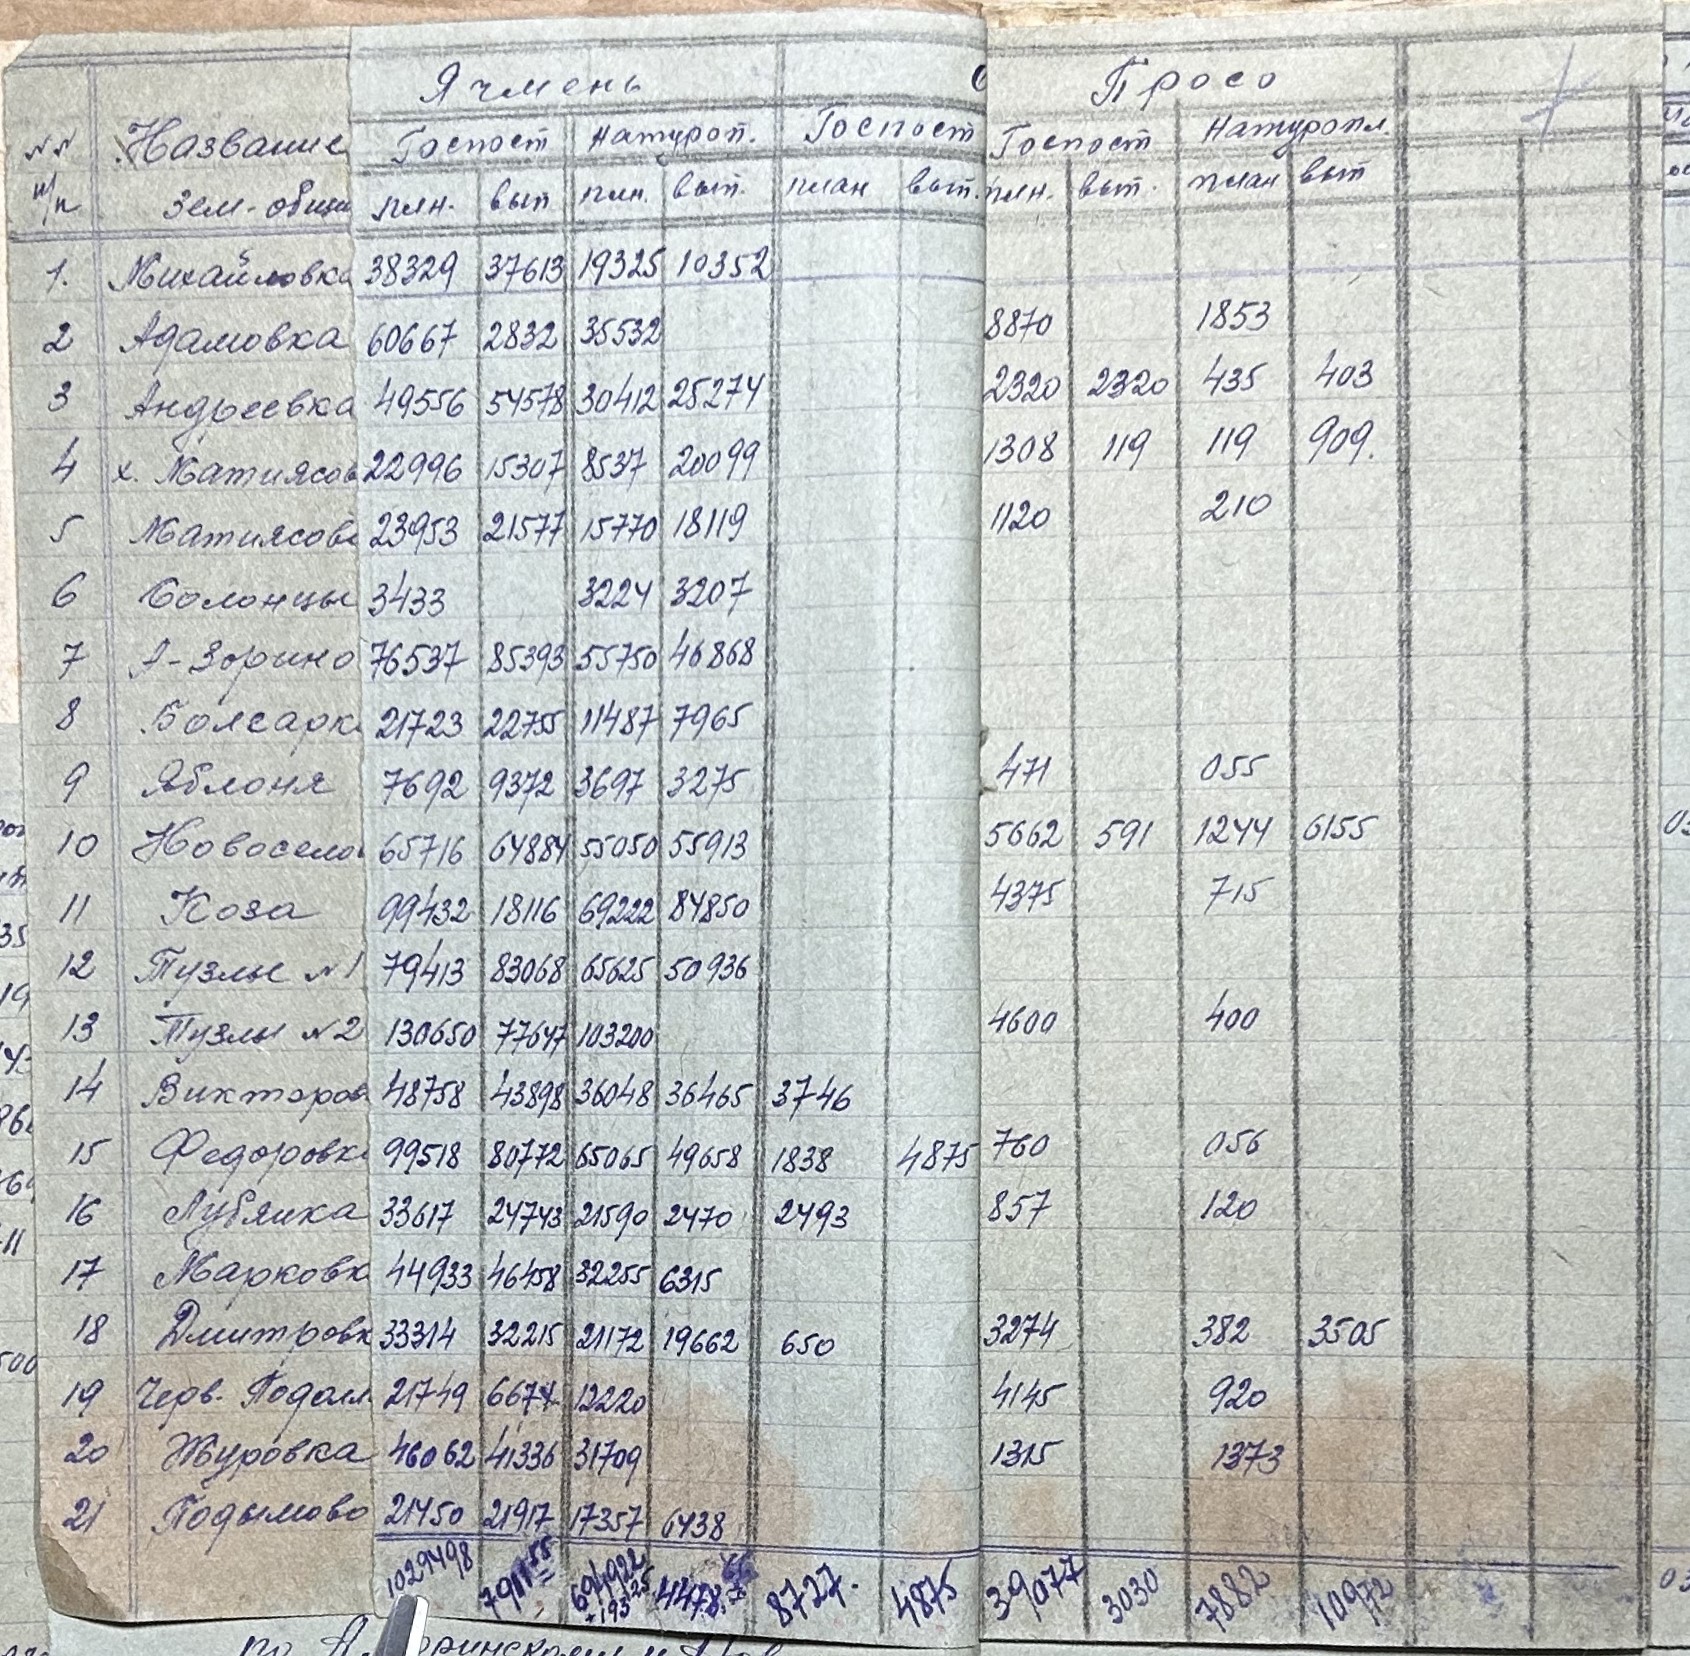 Ячмень Просо
№№ Название Госпост Натуроп. Госпост Госпост Натуропл.
п/п зем-общи плн. вып плн. вып. план вып. плн. вып. план вып
1. Михайловка 38329 37613 19325 10352
2 Адамовка 60667 2832 35532 8870 1853
3 Андреевка 49556 54578 30412 25274 2320 2320 435 403
4 х. Матиясов 22996 15307 8537 20099 1308 119 119 909.
5 Матиясов 23953 21577 15770 18119 1120 210
6 Солонцы 3433 3224 3207
7 А-Зорино 76537 85393 55750 46868
8 Болгарк 21723 22755 11487 7965
9 Яблоня 7692 9372 3697 3275 471 055
10 Новосело 65716 64884 55050 55913 5662 591 1244 6155
11 Коза 99432 18116 69222 84850 4375 715
12 Тузлы №1 79413 83068 65625 50936
13 Тузлы №2 130650 77647 103200 4600 400
14 Викторов 48758 43898 36048 36465 3746
15 Федоровк 99518 80772 65065 49658 1838 4875 760 056
16 Лубянка 33617 24743 21590 2470 2493 857 120
17 Марковк 44933 46458 32255 6315
18 Дмитровк 33314 32215 21172 19662 650 3274 382 3505
19 Черв. Подол 21749 6674 12220 4145 920
20 Журовка 46062 41336 31709 1315 1373
21 Подымово 21450 21917 17357 6438
1029498 791155 694922 8727. 4875 39077 3030 7882 10972
+19325